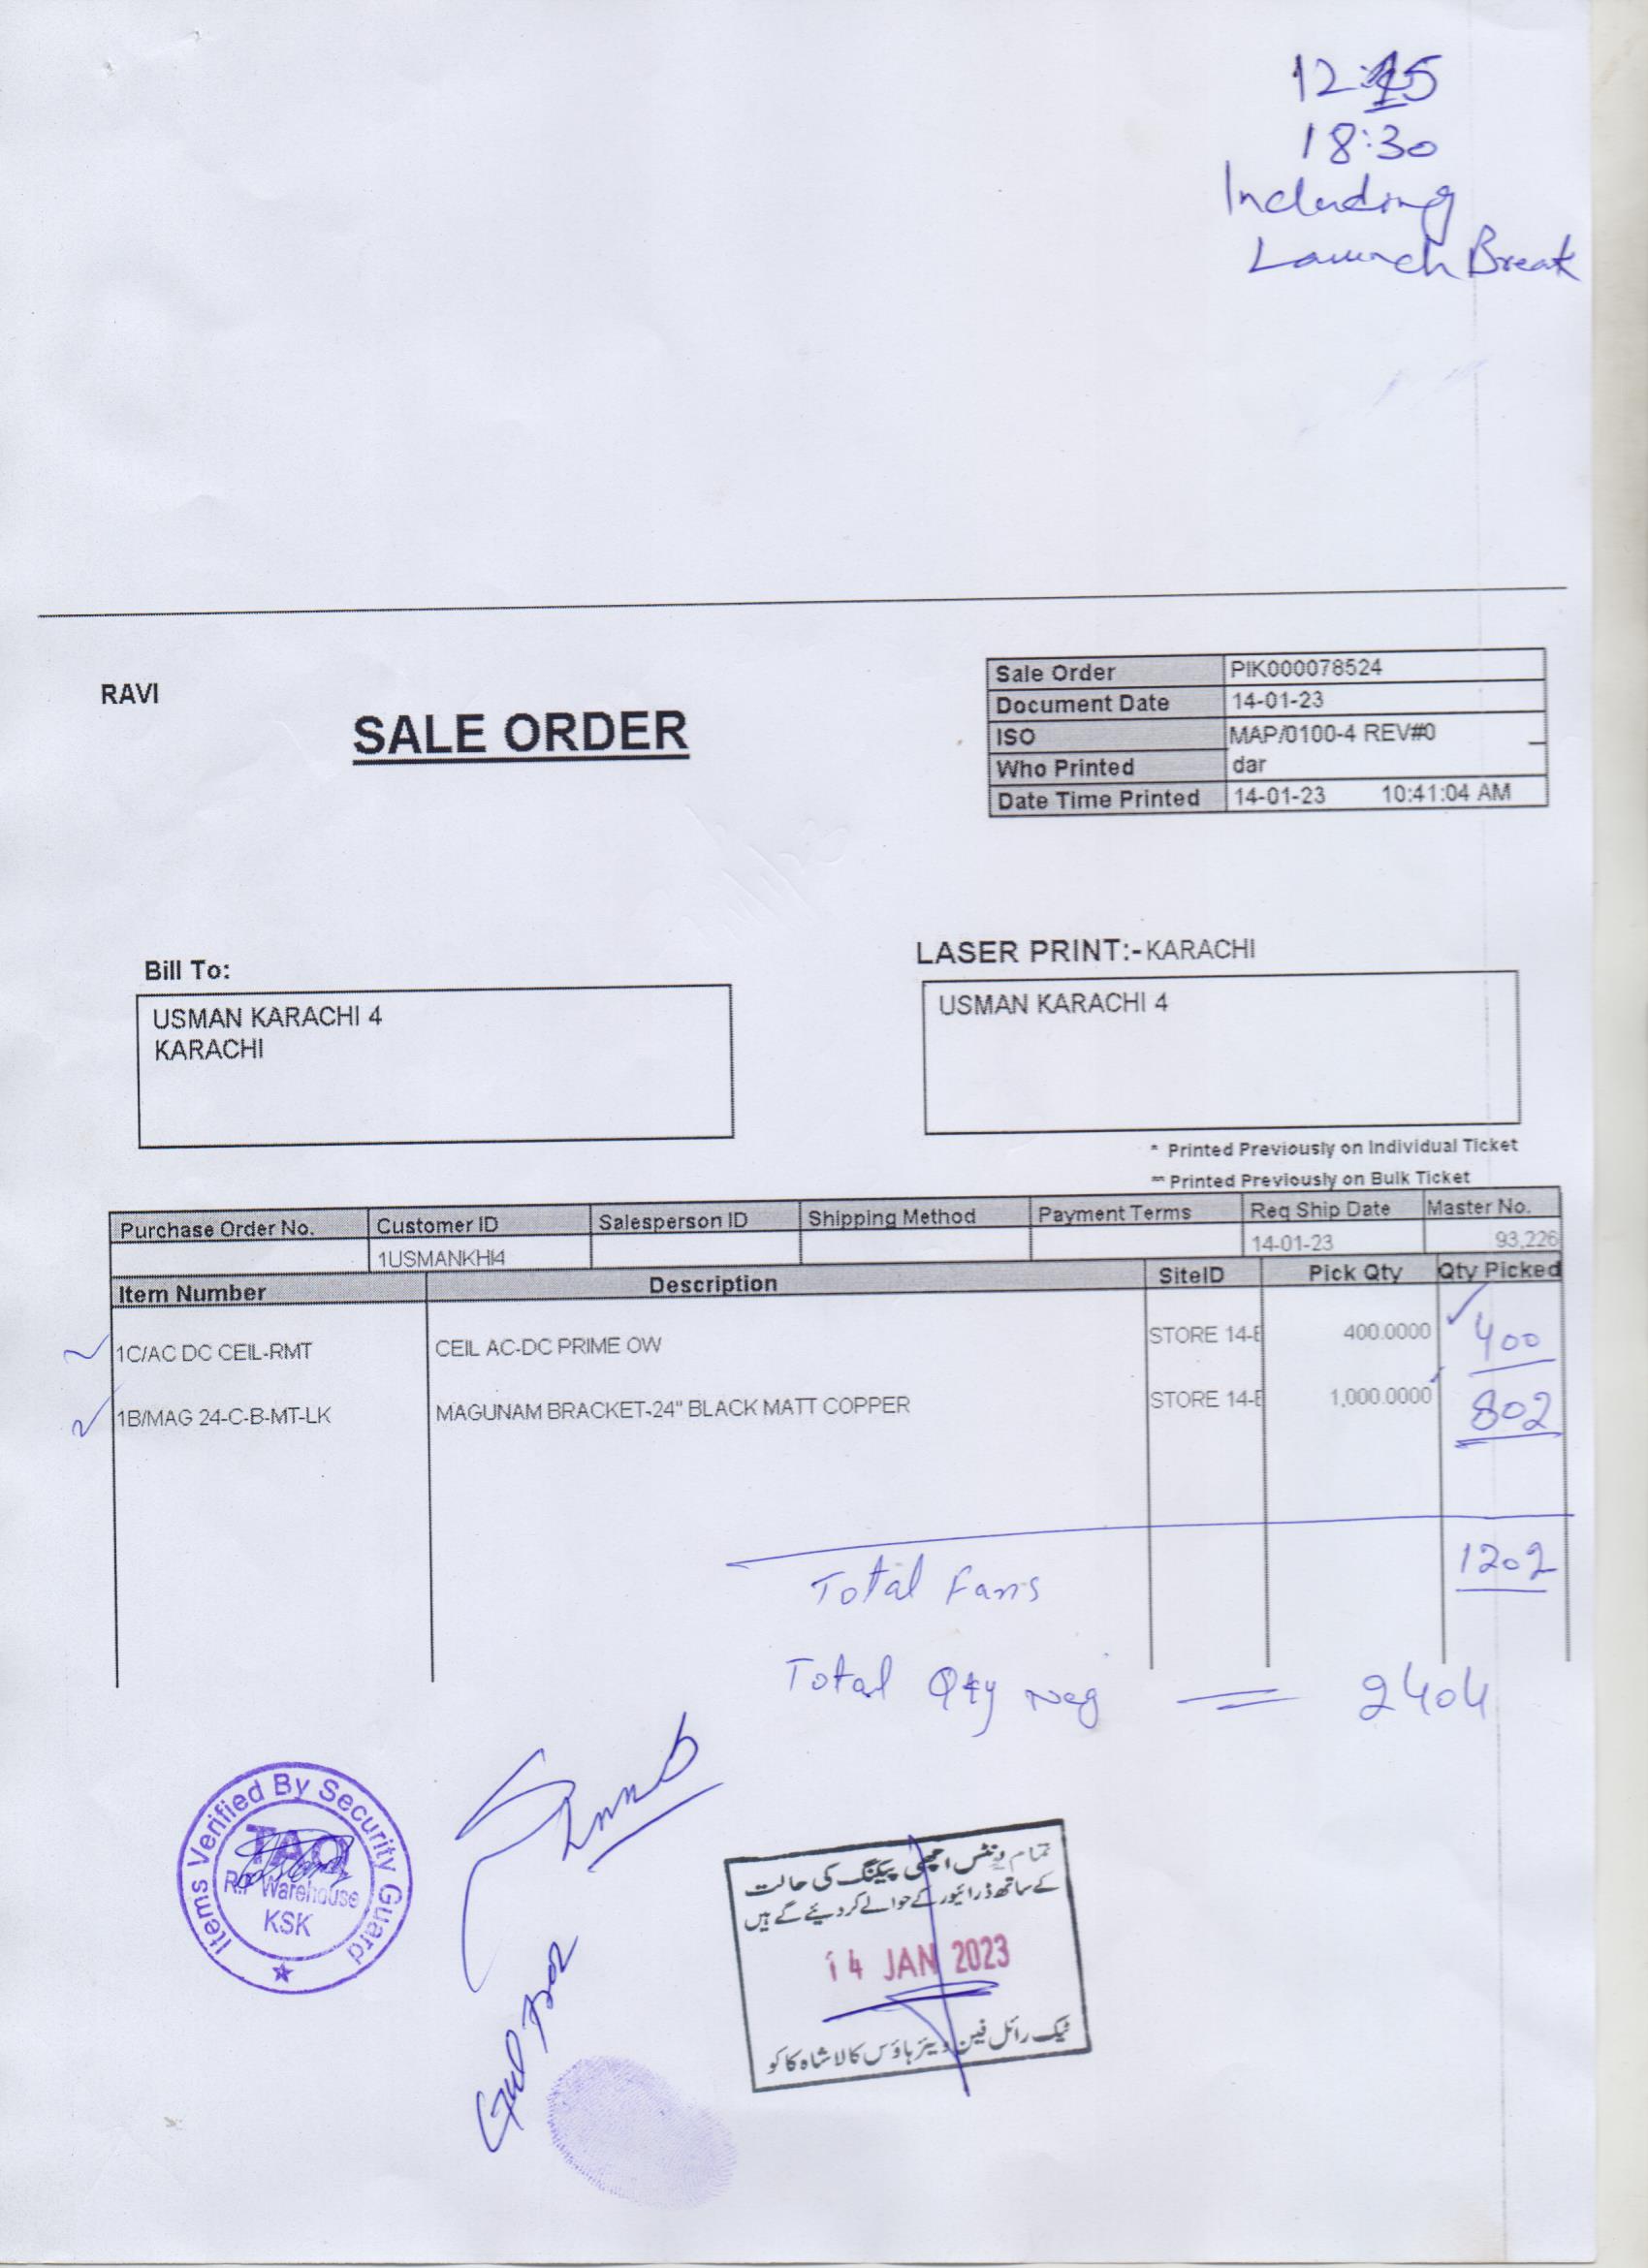 12:15
18:30
Including
Launch Break
RAVI
SALE ORDER
Sale Order PIK000078524
Document Date 14-01-23
ISO MAP/0100-4 REV#0
Who Printed dar
Date Time Printed 14-01-23 10:41:04 AM
Bill To:
USMAN KARACHI 4
KARACHI
LASER PRINT:-KARACHI
USMAN KARACHI 4
* Printed Previously on Individual Ticket
** Printed Previously on Bulk Ticket
Purchase Order No. Customer ID Salesperson ID Shipping Method Payment Terms Req Ship Date Master No.
1USMANKHI4 14-01-23 93,226
Item Number Description SiteID Pick Qty Qty Picked
1C/AC DC CEIL-RMT CEIL AC-DC PRIME OW STORE 14-E 400.0000 400
1B/MAG 24-C-B-MT-LK MAGUNAM BRACKET-24" BLACK MATT COPPER STORE 14-E 1,000.0000 802
Total Fans 1202
Total Qty Nag = 2404
Items Verified By Security Guard
TAQ
R.F Warehouse
KSK
Gul
تمام یونٹس اچھی پیکنگ کی حالت
کے ساتھ ڈرائیور کے حوالے کر دیئے گے ہیں
14 JAN 2023
ٹیک رائل فین ویئر ہاؤس کالا شاہ کاکو